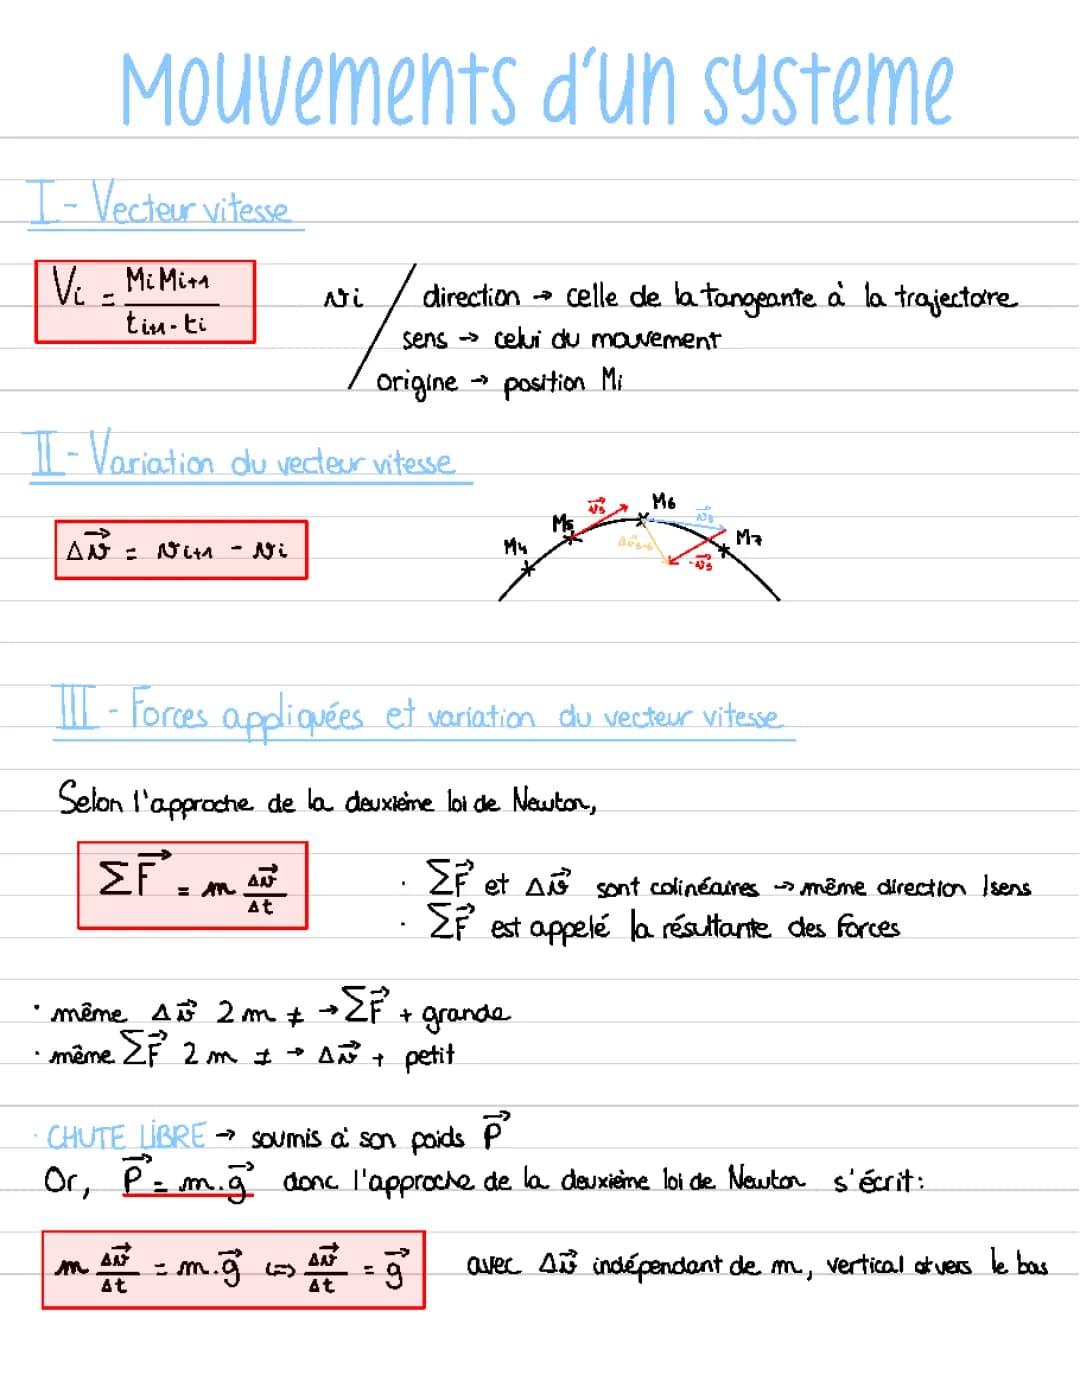 Mouvements d'un systeme
I - Vecteur vitesse
Vi = MiMi+1 / ti+1 - ti
vi / direction → celle de la tangeante à la trajectoire
sens → celui du mouvement
origine → position Mi
II - Variation du vecteur vitesse
Δv⃗ = vi+1 - vi
M4 M5 v⃗5 M6 M7
-v⃗5
III - Forces appliquées et variation du vecteur vitesse
Selon l'approche de la deuxième loi de Newton,
ΣF⃗ = m Δv⃗ / Δt
· ΣF⃗ et Δv⃗ sont colinéaires → même direction / sens
· ΣF⃗ est appelé la résultante des forces
· même Δv⃗ 2 m ≠ → ΣF⃗ + grande
· même ΣF⃗ 2 m ≠ → Δv⃗ + petit
· CHUTE LIBRE → soumis à son poids P⃗
Or, P⃗ = m.g⃗ donc l'approche de la deuxième loi de Newton s'écrit :
m Δv⃗ / Δt = m.g⃗ <=> Δv⃗ / Δt = g⃗
avec Δv⃗ indépendant de m, vertical et vers le bas